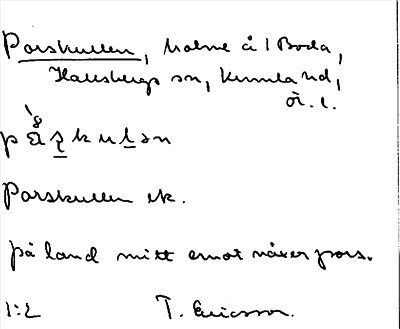 Porskullen, holme å l Boda,
Hallsbergs sn, Kumla hd,
Ör. l.
Porskullen ek.
på land mitt emot växer pors.
1:2 T. Ericsson.